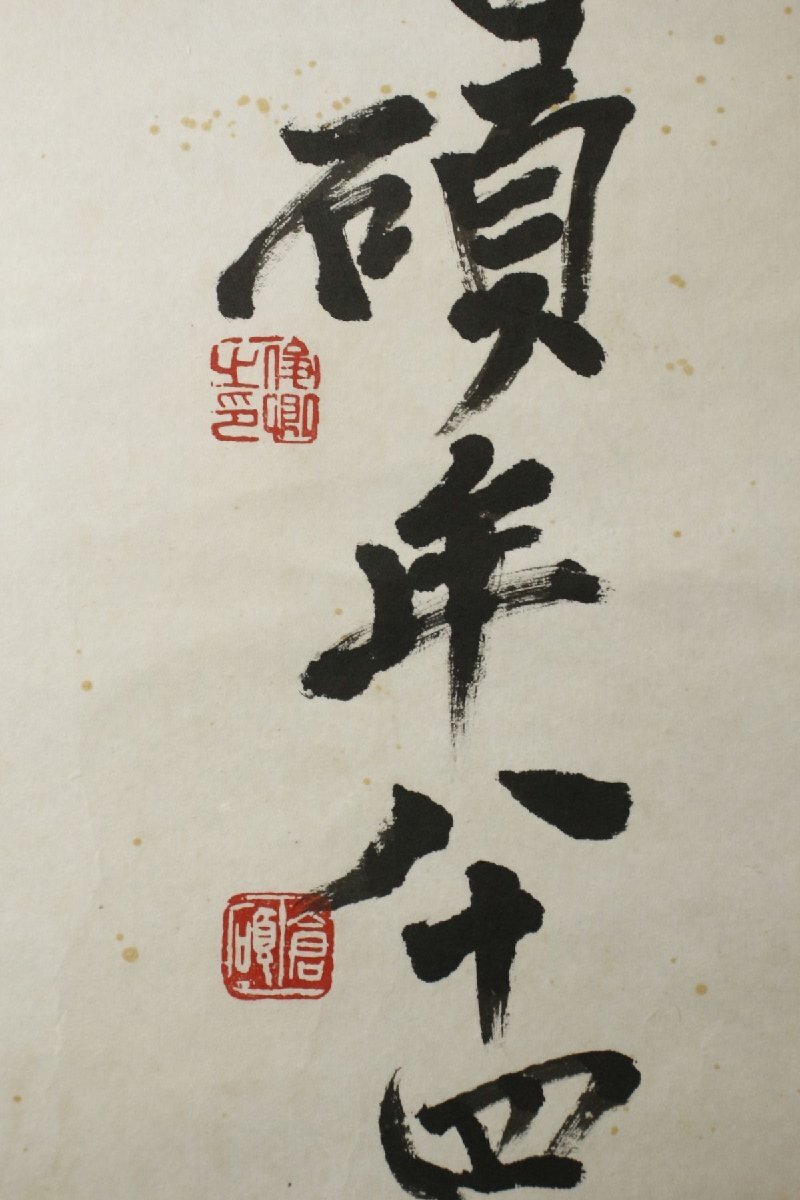 碩年八十四
俊卿之印
倉碩